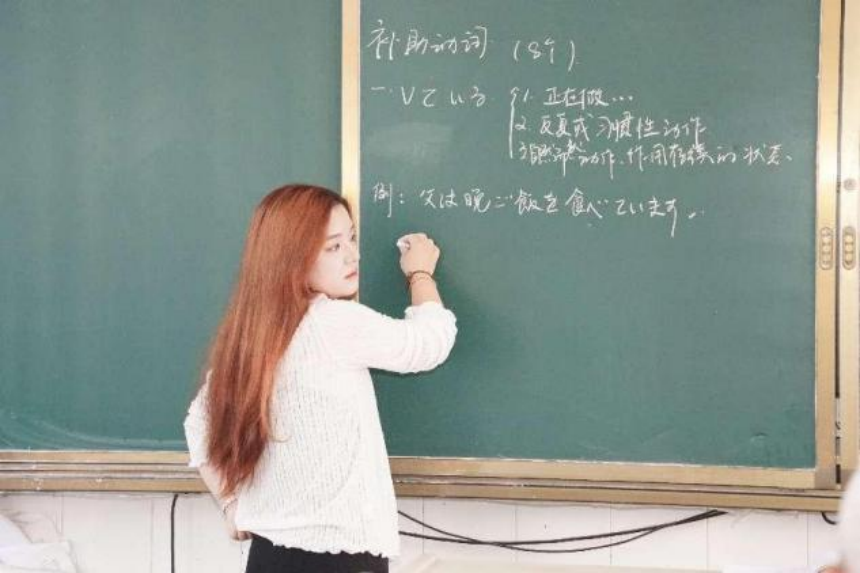 补助动词 (8个)
一. Vている {1. 正在做…
2. 反复或习惯性动作
动作、作用存续的状态
例: 父は晩ご飯を食べています。